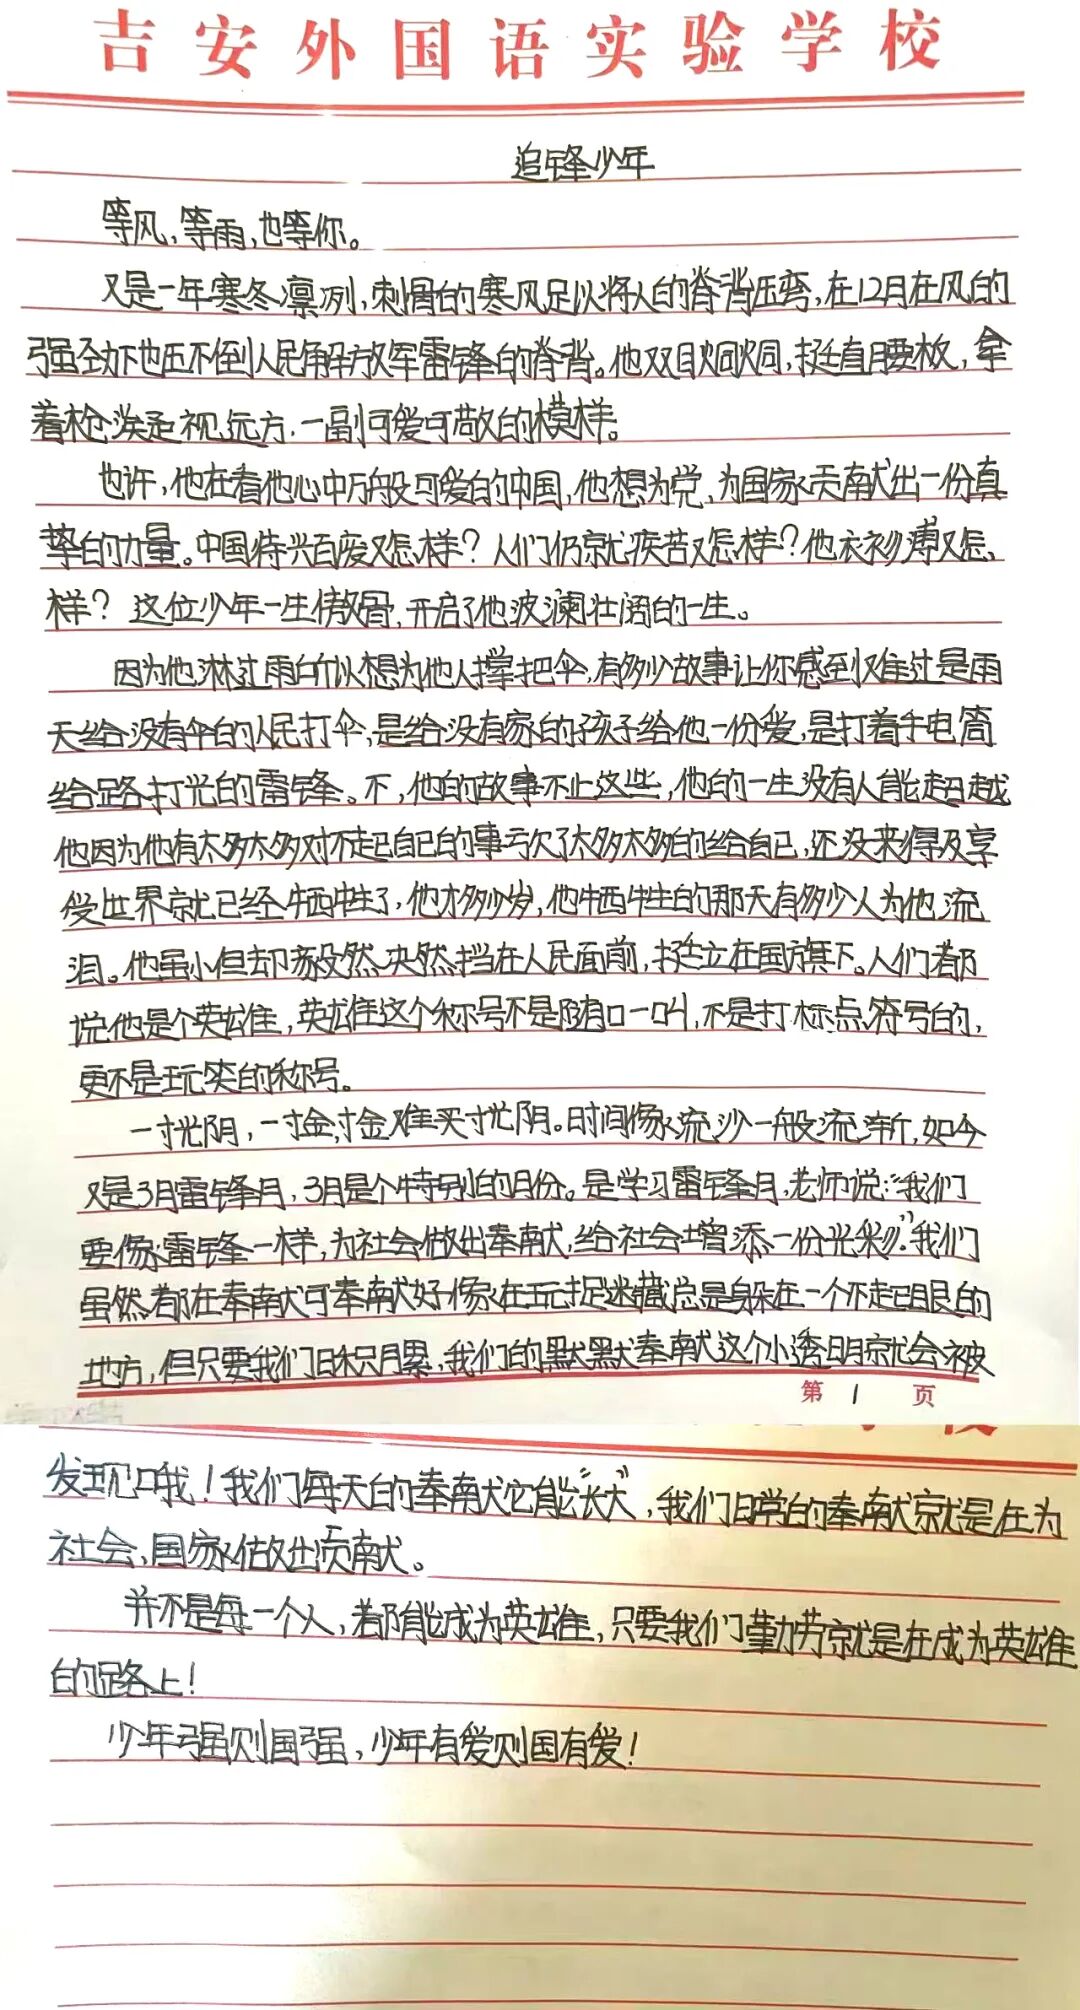 吉安外国语实验学校
追锋少年
等风，等雨，也等你。
又是一年寒冬凛冽，刺骨的寒风足以将人的脊背压弯，在12月在风的
强劲下也压不倒人民解放军雷锋的脊背。他双目炯炯，挺直腰板，拿
着枪涣走视远方，一副可爱可敬的模样。
也许，他在看他心中万般可爱的中国，他想为党、为国家贡献出一份真
挚的力量。中国待兴百废又怎样？人们仍就疾苦又怎样？他衣衫薄又怎
样？这位少年一生傲骨，开启了他波澜壮阔的一生。
因为他淋过雨所以想为他人撑把伞，有多少故事让你感到难过是雨
天给没有伞的人民打伞，是给没有家的孩子给他一份爱，是打着手电筒
给路打光的雷锋。不，他的故事不止这些，他的一生没有人能超越
他因为他有太多太多对不起自己的事亏欠了太多太多的给自己，还没来得及享
受世界就已经牺牲了，他才多少岁，他牺牲的那天有多少人为他流
泪。他虽小但却毅然决然挡在人民面前，挺立在国旗下。人们都
说他是个英雄，英雄这个称号不是随口一叫，不是打标点符号的，
更不是玩笑的称号。
一寸光阴，一寸金，寸金难买寸光阴。时间像流沙一般流渐，如今
又是3月雷锋月，3月是个特别的月份。是学习雷锋月，老师说：“我们
要像雷锋一样，为社会做出奉献，给社会增添一份光彩”。我们
虽然都在奉献可奉献好像在玩捉迷藏总是躲在一个不起眼的
地方，但只要我们日积月累，我们的默默奉献这个小透明就会被
第1页
发现哦！我们每天的奉献它能“长大”，我们日常的奉献就是在为
社会、国家做出贡献。
并不是每一个人，都能成为英雄，只要我们勤劳就是在成为英雄
的路上！
少年强则国强，少年有爱则国有爱！